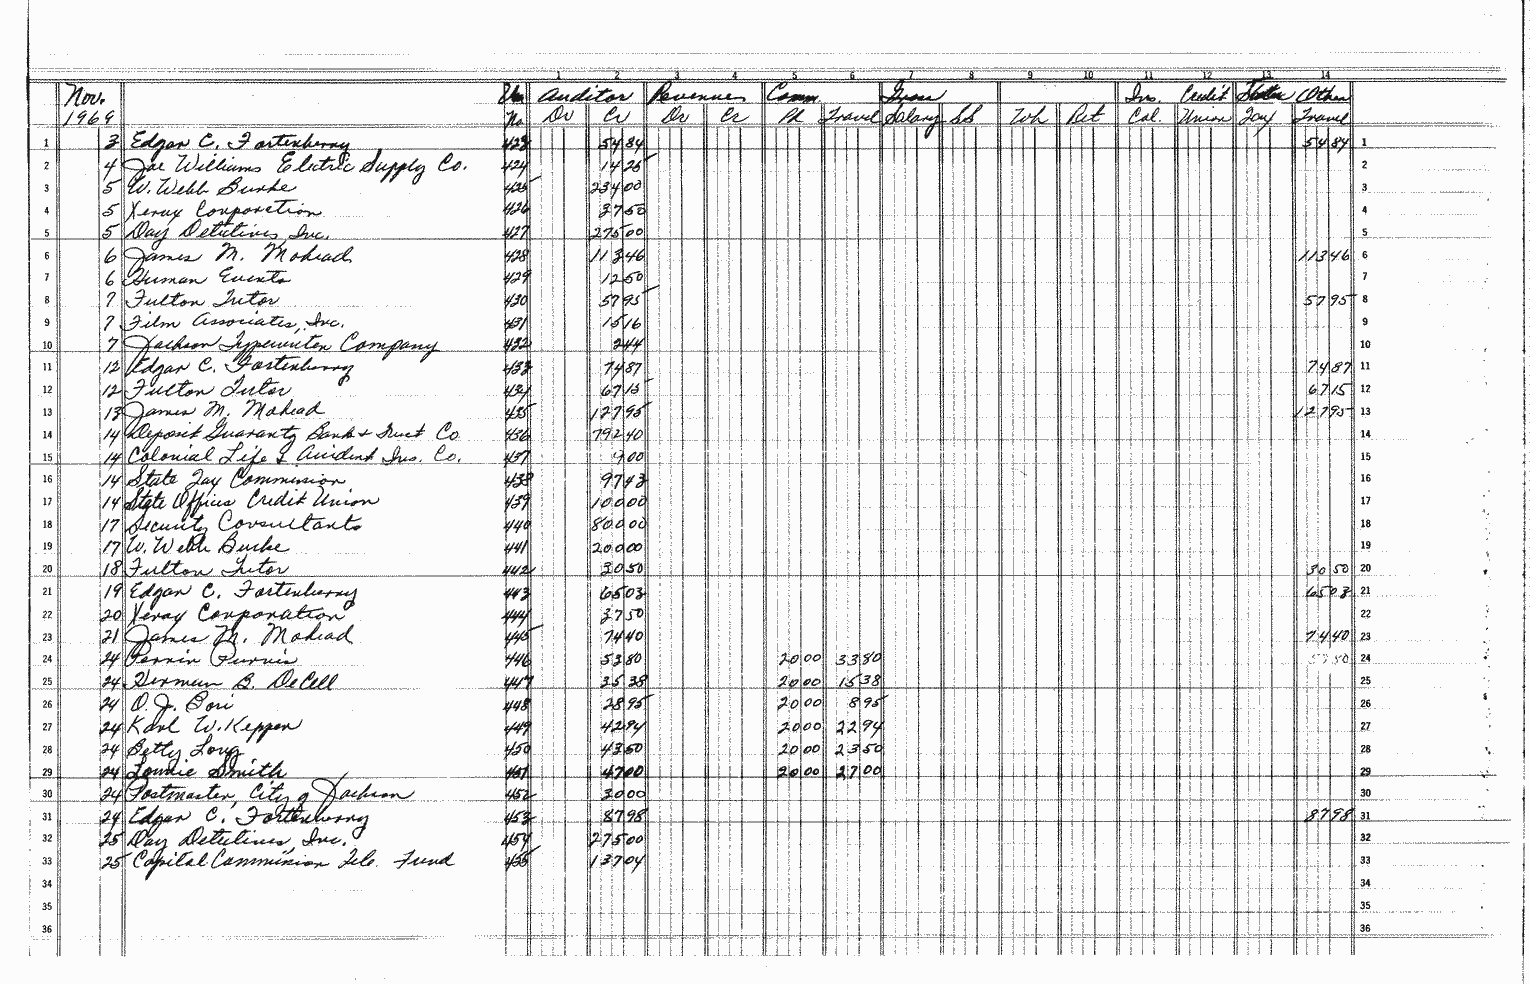 1 2 3 4 5 6 7 8 9 10 11 12 13 14
Nov. Auditor Revenues Comm. Gross Ins. Credit State Other
1969 No. Dr Cr Dr Cr Pd Travel Salary SS Wh Ret Col. Union Tax Travel
1 3 Edgar C. Fortenberry 423 54 84 54 84 1
2 4 Joe Williams Electric Supply Co. 424 14 25 2
3 5 W. Webb Burke 425 234 00 3
4 5 Xerox Corporation 426 37 50 4
5 5 Day Detectives, Inc. 427 275 00 5
6 6 James M. Mohead 428 113 46 113 46 6
7 6 Human Events 429 12 50 7
8 7 Fulton Tutor 430 57 95 57 95 8
9 7 Film Associates, Inc. 431 15 16 9
10 7 Jackson Typewriter Company 432 2 44 10
11 12 Edgar C. Fortenberry 433 74 87 74 87 11
12 12 Fulton Tutor 434 67 15 67 15 12
13 13 James M. Mohead 435 127 95 127 95 13
14 14 Deposit Guaranty Bank & Trust Co 436 792 40 14
15 14 Colonial Life & Accident Ins. Co. 437 9 00 15
16 14 State Tax Commission 438 97 43 16
17 14 State Offices Credit Union 439 100 00 17
18 17 Security Consultants 440 800 00 18
19 17 W. Webb Burke 441 200 00 19
20 18 Fulton Tutor 442 30 50 30 50 20
21 19 Edgar C. Fortenberry 443 65 03 65 03 21
22 20 Xerox Corporation 444 37 50 22
23 21 James M. Mohead 445 74 40 74 40 23
24 24 Perrin Purvis 446 53 80 20 00 33 80 53 80 24
25 24 Herman B. DeCell 447 35 38 20 00 15 38 25
26 24 O. J. Bori 448 28 95 20 00 8 95 26
27 24 Karl W. Kepper 449 42 94 20 00 22 94 27
28 24 Betty Long 450 43 50 20 00 23 50 28
29 24 Lonnie Smith 451 47 00 20 00 27 00 29
30 24 Postmaster, City of Jackson 452 30 00 30
31 24 Edgar C. Fortenberry 453 87 98 87 98 31
32 25 Day Detectives, Inc. 454 275 00 32
33 25 Capital Commission Tele. Fund 455 137 04 33
34 34
35 35
36 36